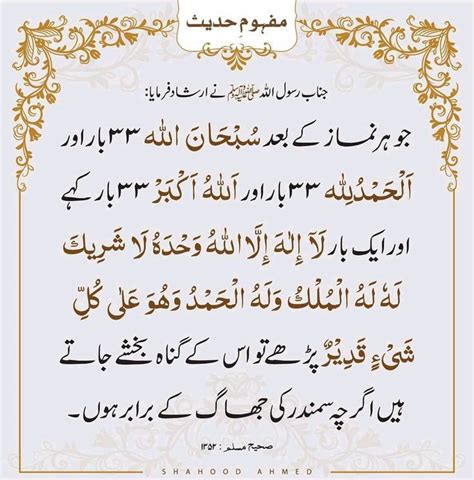 مفہومِ حدیث
جناب رسول اللہ ﷺ نے ارشاد فرمایا:
جو ہر نماز کے بعد سُبْحَانَ اللہ ۳۳ بار اور
اَلْحَمْدُلِلّٰه ۳۳ بار اور اَللّٰهُ اَكْبَرْ ۳۳ بار کہے
اور ایک بار لَآ اِلٰهَ اِلَّا اللّٰهُ وَحْدَهٗ لَا شَرِيكَ
لَهٗ لَهُ الْمُلْكُ وَلَهُ الْحَمْدُ وَهُوَ عَلٰى كُلِّ
شَىْءٍ قَدِيْرٌ پڑھے تو اس کے گناہ بخشے جاتے
ہیں اگرچہ سمندر کی جھاگ کے برابر ہوں۔
صحیح مسلم : ۱۳۵۲
SHAHOOD AHMED